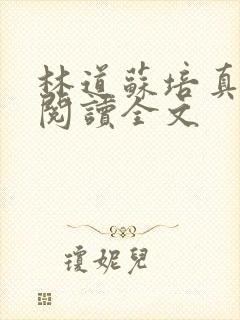 林道蘇培真
閱讀全文
瓊妮兒